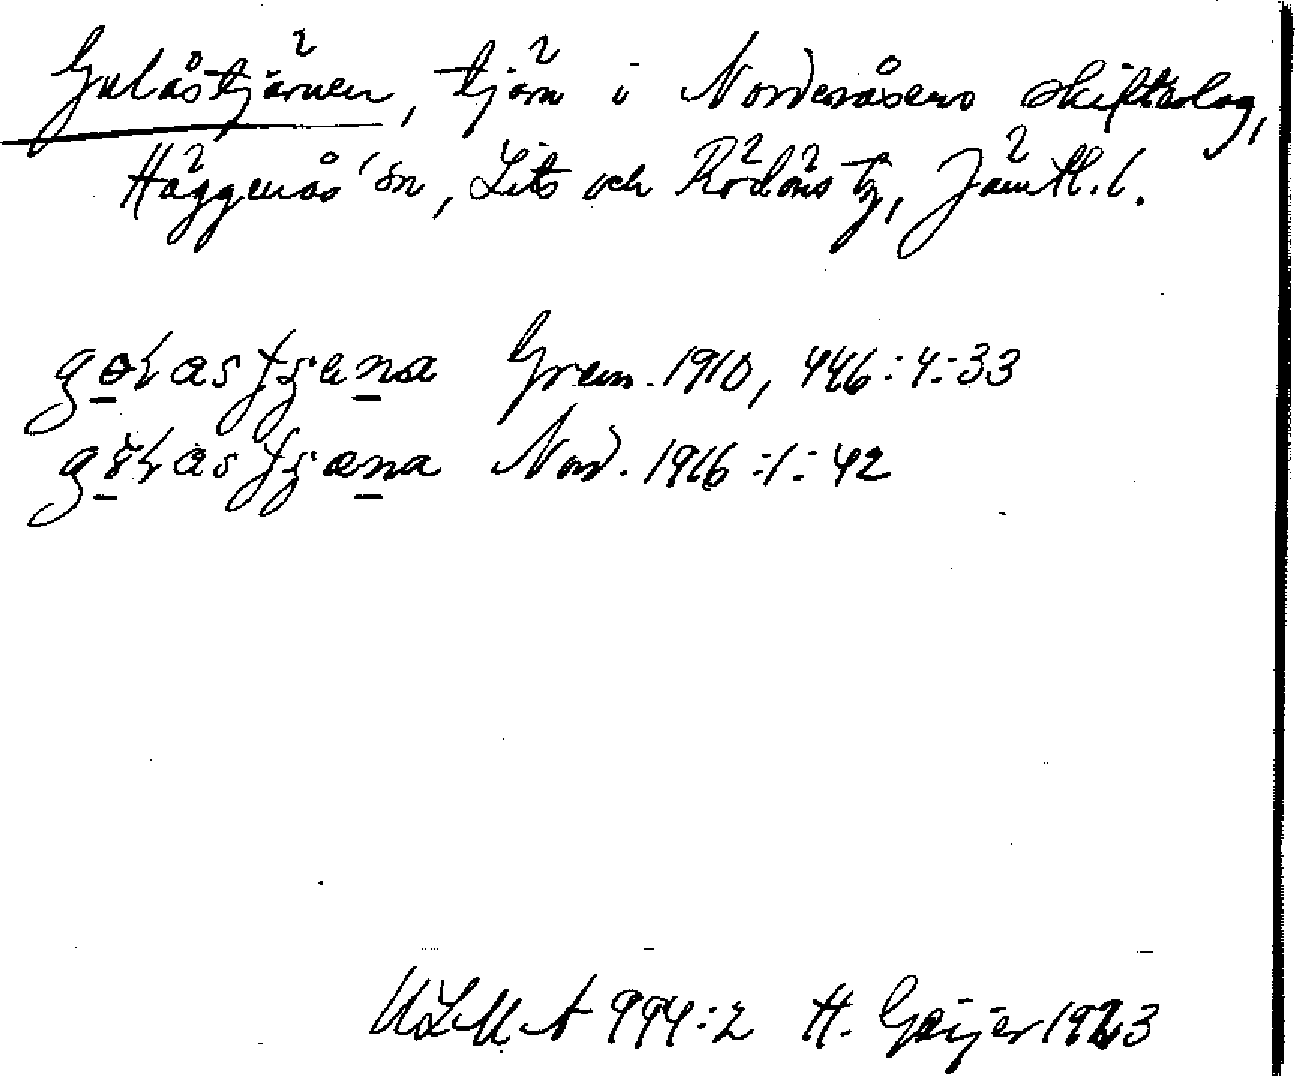 Gulåstjärnen, tjärn i Nordanåsens skifteslag,
Häggenås sn, Lits och Rödöns tg, Jämtl. l.
Grein. 1910, 446:4:33
Nord. 1916:1:42
ULMA 994:2 H. Geijer 1923